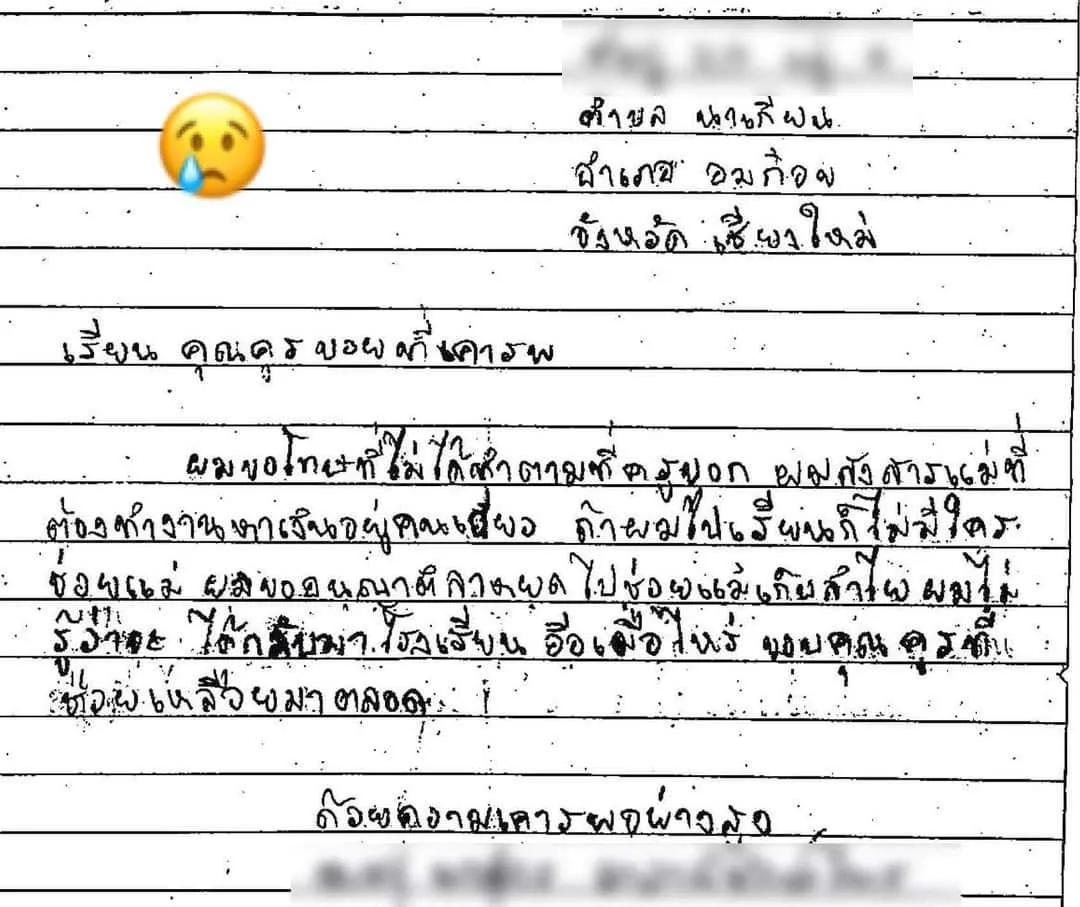 ตำบล นาเกียน
อำเภอ อมก๋อย
จังหวัด เชียงใหม่
เรียน คุณครู บอย ที่เคารพ
ผมขอโทษที่ไม่ได้ทำตามที่ครูบอก ผมสงสารแม่ที่
ต้องทำงานหาเงินอยู่คนเดียว ถ้าผมไปเรียนก็ไม่มีใคร
ช่อยแม่ ผมขออนุณาติลาหยุด ไปช่อยแม่เก็บลำไย ผมไม่
รู้ว่าจะ ได้กลับมา โรงเรียน อีกเมื่อไหร่ ขอบคุณ คูรที่
ช่อยเหลือผมมาตลอด
ด้วยความเคารพอย่างสูง